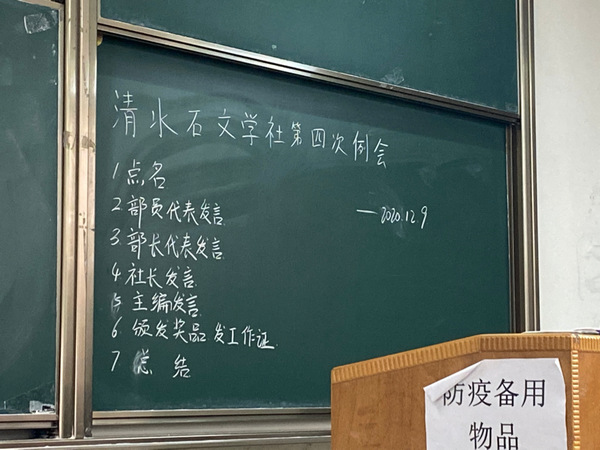 清水石文学社第四次例会
1 点名
2 部员代表发言
—2020.12.9
3 部长代表发言
4 社长发言
5 主编发言
6 颁发奖品 发工作证
7 总 结
防疫备用
物品